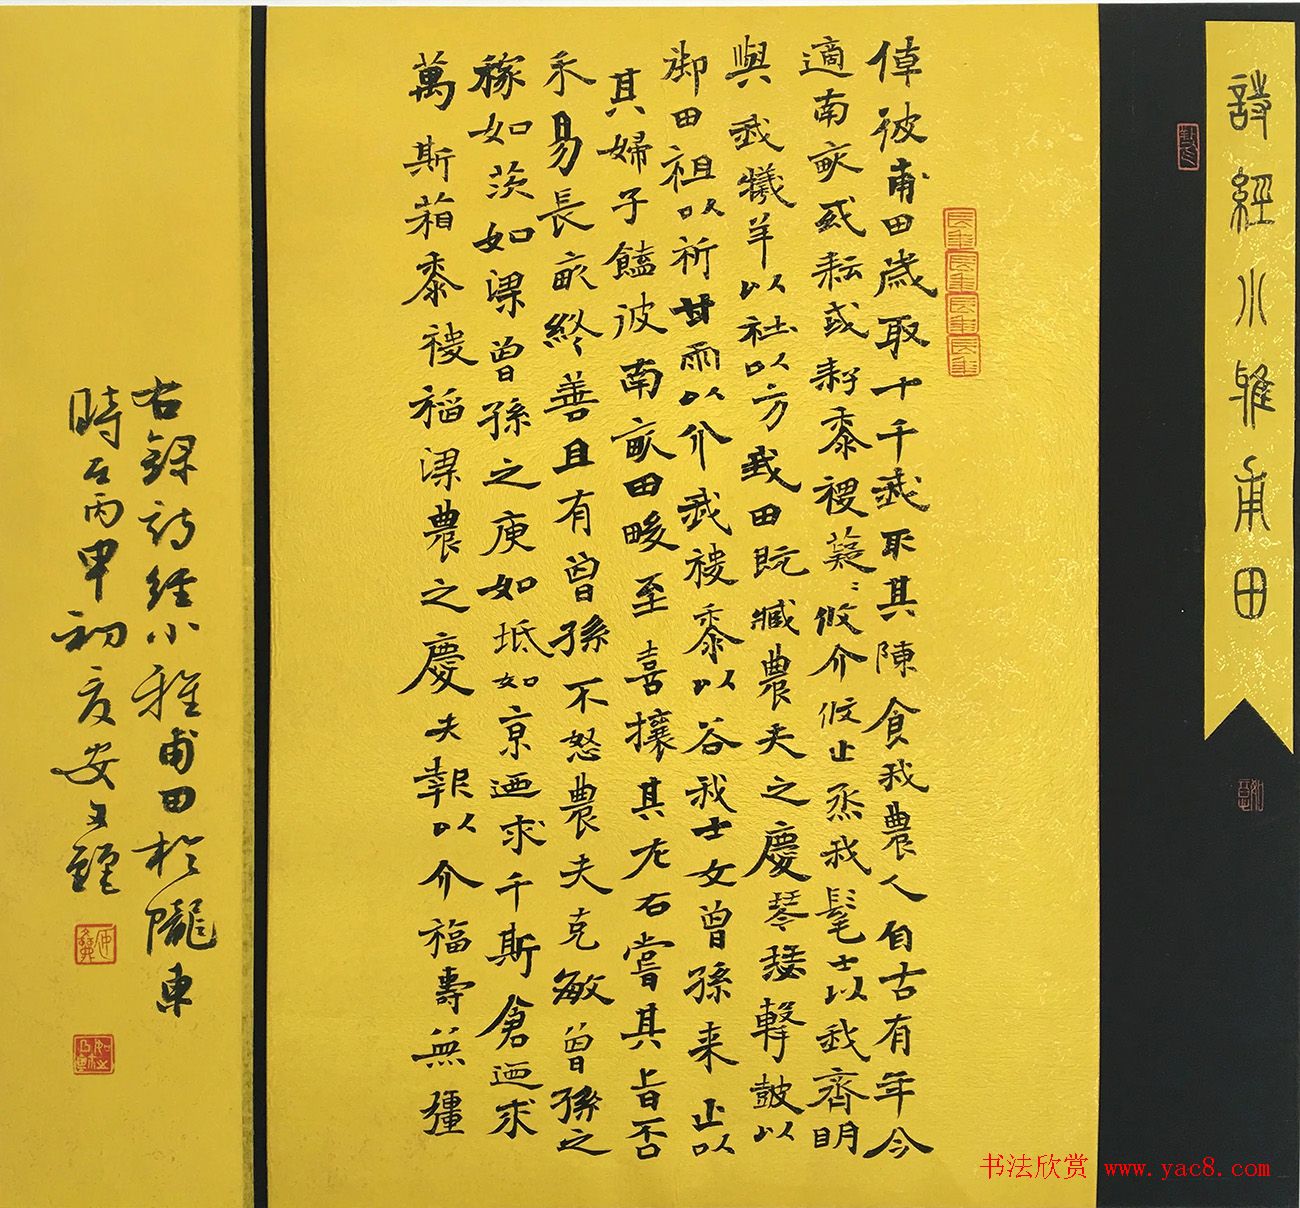 詩經小雅甫田
倬彼甫田歲取十千我取其陳食我農人自古有年今
適南畝或耘或耔黍稷薿〻攸介攸止烝我髦士以我齊明
與我犧羊以社以方我田既臧農夫之慶琴瑟擊鼓以
御田祖以祈甘雨以介我稷黍以谷我士女曾孫来止以
其婦子饁彼南畝田畯至喜攘其左右嘗其旨否
禾易長畝終善且有曾孫不怒農夫克敏曾孫之
稼如茨如梁曾孫之庾如坻如京迺求千斯倉迺求
萬斯箱黍稷稻梁農之慶夫報以介福壽無疆
右録詩經小雅甫田於隴東
時在丙申初夏安文
书法欣赏 www.yac8.com